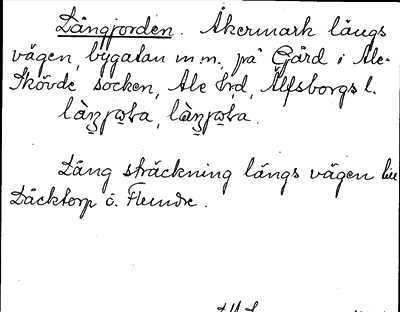 Långjorden. Åkermark längs
vägen, bygatan m.m., på Gård i Ale-
Skövde socken, Ale hd, Älfsborgs l.
Lång sträckning längs vägen till
Däcktorp o.